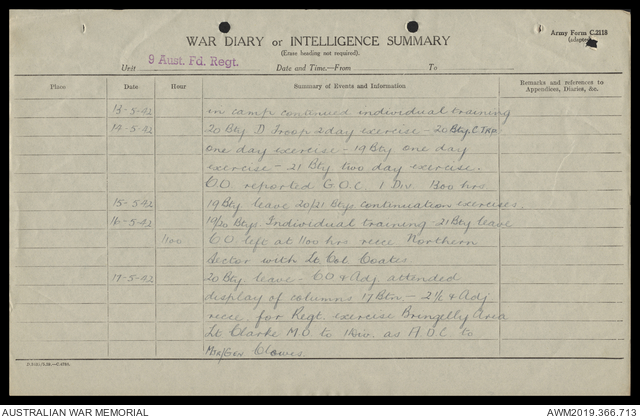 Army Form C.2118
(adapted)
WAR DIARY or INTELLIGENCE SUMMARY
(Erase heading not required).
Unit 9 Aust. Fd. Regt. Date and Time.—From To
Place Date Hour Summary of Events and Information Remarks and references to Appendices, Diaries, &c.
13-5-42 in camp continued individual training
14-5-42 20 Bty D Troop 2 day exercise - 20 Bty. C. Trp.
one day exercise - 19 Bty one day
exercise - 21 Bty two day exercise.
C.O. reported G.O.C. 1 Div. 1300 hrs
15-5-42 19 Bty leave 20/21 Btys continuation exercises.
16-5-42 19/20 Btys Individual training - 21 Bty leave
1100 CO left at 1100 hrs recce Northern
Sector with Lt Col Coates
17-5-42 20 Bty leave - CO & Adj attended
display of columns 17 Btn - 2i/c & Adj
recce for Regt. exercise Bringelly Area
Lt Clarke M.O to 1 Div. as A.D.C to
Maj/Gen Clowes.
AUSTRALIAN WAR MEMORIAL AWM2019.366.713